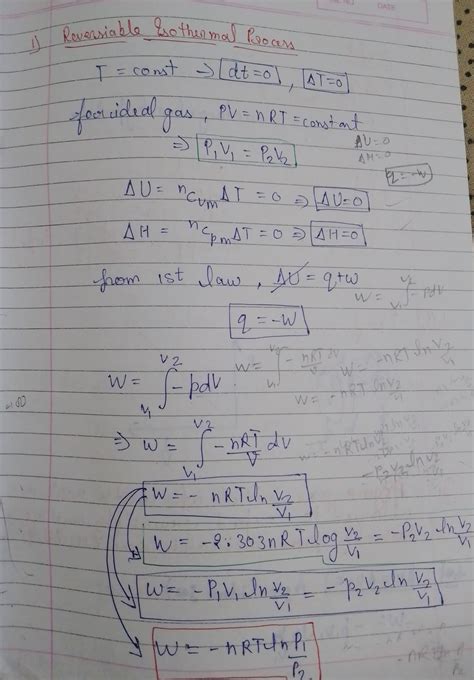 1) Reversiable Isothermal Process
T = const ⇒ dt=0 , ΔT=0
for ideal gas, PV = nRT = constant
⇒ P₁V₁ = P₂V₂
ΔU=0
ΔH=0
q=-w
ΔU = nCvmΔT = 0 ⇒ ΔU=0
ΔH = nCpmΔT = 0 ⇒ ΔH=0
from 1st law, ΔU = q+w
q = -W
W = ∫ V₁ V₂ -pdV
W = ∫ V₁ V₂ -pdV
⇒ W = ∫ V₁ V₂ -nRT/V dV
W = - nRT ln V₂/V₁
W = -2.303nRT log V₂/V₁ = -P₂V₂ ln V₂/V₁
W = -P₁V₁ ln V₂/V₁ = -P₂V₂ ln V₂/V₁
W = -nRT ln P₁/P₂